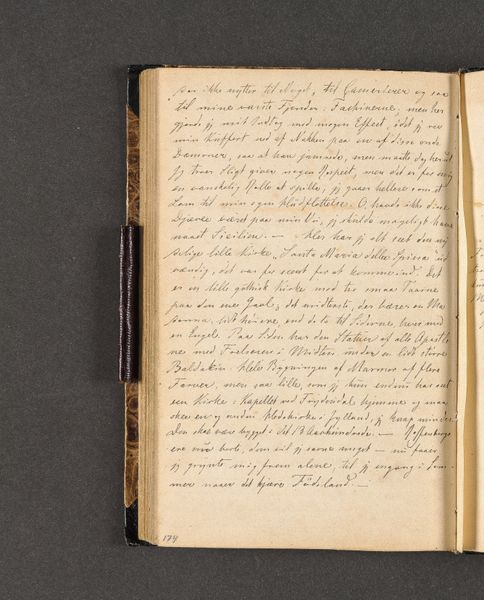 som ikke nytter til Noget, til Camerierer og saa
til mine værste Fjender: Fachinerne; men her
gjorde jeg mit Indtog med megen Effect, idet jeg rev
min Kuffert ud af Nakken paa en af disse onde
Dæmoner, saa at han
jeg troer Sligt giver nogen Respect, men det er for mig
en vanskelig Rolle at spille, jeg gaaer hellere om et
Lam til min egen Klædflettelse. O, havde ikke disse
Djævle været paa min Vei, jeg skulde mageligt have
naaet Sicilien. — Her har jeg alt seet den nyd-
delige lille Kirke, Santa Maria della Spina ud-
vendig, det var for seent for at komme ind. Det
er en lille gothisk Kirke med tre smaa Taarne
paa den ene Gavl; det midterste, der bærer en Ma-
donna, lidt høiere end de to til Siderne, hver med
en Engel. Paa Siden har den Statuer af alle Apostle-
ne med Frelseren i Midten under en lidt større
Baldakin. Hele Bygningen af Marmor af flere
Farver, men saa lille, som jeg kun endnu har seet
een Kirke: Kapellet ved Frijsendal hjemme og maa-
skee en og anden Hedekirke i Jylland, jeg knap mindre.
Den skal være bygget i det 13 Aarhundrede. —
ere nu borte, dem vil jeg savne meget — nu faaer
jeg grynte mig frem alene, til jeg engang i Som-
mer naaer det kjære Fødeland. —
174